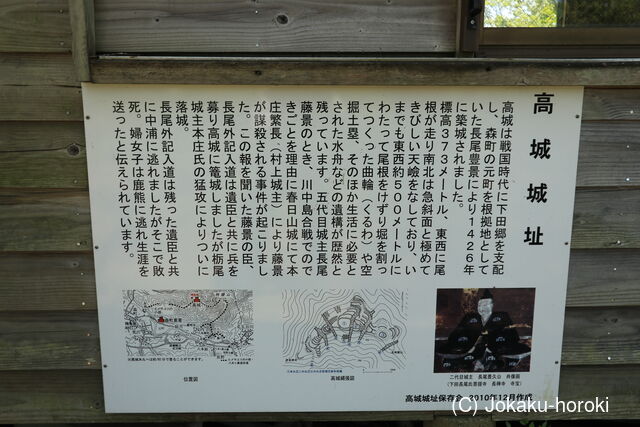 高城城址
高城は戦国時代に下田郷を支配
し、森町の元町を根拠地として
いた長尾豊景により1426年
に築城されました。
標高373メートル、東西に尾
根が走り南北は急斜面と極めて
きびしい天嶮をなしており、い
までも東西約500メートルに
わたって尾根をけずり堀を割っ
てつくった曲輪（くるわ）や空
掘土塁、そのほか生活に必要と
された水舟などの遺構が歴然と
残っています。五代目城主長尾
藤景のとき、川中島合戦でので
きごとを理由に春日山城にて本
庄繁長（村上城主）により藤景
が謀殺される事件が起こりまし
た。この報を聞いた藤景の臣、
長尾外記入道は遺臣と共に兵を
募り高城に篭城しましたが栃尾
城主本庄氏の猛攻によりついに
落城。
長尾外記入道は残った遺臣と共
に中浦に逃れましたがそこで敗
死。婦女子は鹿熊に逃れ生涯を
送ったと伝えられています。
位置図
高城縄張図
二代目城主 長尾景久公 肖像画
（下田長尾氏菩提寺 長禅寺 寺宝）
高城城址保存会 2010年12月作成
(C) Jokaku-horoki